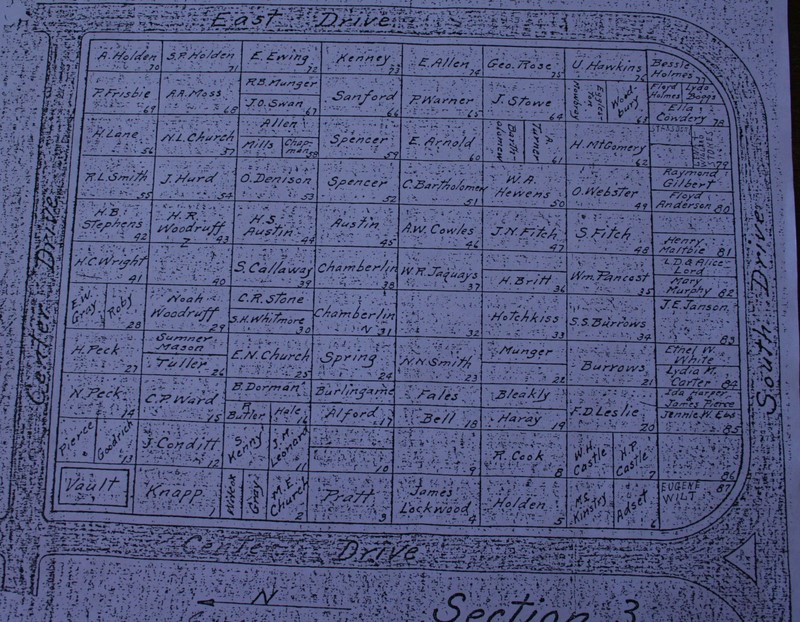 East Drive
A. Holden 70 S.P. Holden 71 E. Ewing 72 Kenney 73 E. Allen 74 Geo. Rose 75 U. Hawkins 76 Bessie Holmes 77
P. Frisbie 69 A.A. Moss 68 R.B. Munger J.O. Swan 67 Sanford 66 P. Warner 65 J. Stowe 64 Woodbury 63 Floyd Holmes Lyda Boggs Ella Cowdery 78
H. Lane 56 N.L. Church 57 Allen Mills Chapman 58 Spencer 59 E. Arnold 60 Bartholomew A. Turner 61 H. MtGomery 62 79
R.L. Smith 55 J. Hurd 54 O. Denison 53 Spencer 52 C. Bartholomew 51 W.A. Hewens 50 O. Webster 49 Raymond Gilbert Floyd Anderson 80
H.B. Stephens 42 H.R. Woodruff 43 H.S. Austin 44 Austin 45 A.W. Cowles 46 J.N. Fitch 47 S. Fitch 48 Henry Maltbie 81
H.C. Wright 41 40 S. Callaway 39 Chamberlin 38 W.R. Jaquays 37 H. Britt 36 Wm. Pancost 35 L.D. & Alice Lord Mary Murphy 82
E.W. Gray Roby 28 Noah Woodruff 29 C.R. Stone S.H. Whitmore 30 Chamberlin N 31 32 Hotchkiss 33 S.S. Burrows 34 J.E. Janson 83
H. Peck 27 Sumner Mason Tuller 26 E.N. Church 25 Spring 24 N.N. Smith 23 Munger 22 Burrows 21 Ethel W. White Lydia M. Carter 84
N. Peck 14 C.P. Ward 15 B. Dorman R. Butler Hale 16 Burlingame Alford 17 Fales Bell 18 Bleakly Haray 19 F.D. Leslie 20 Ida Harper James Pierce Jennie W. 85
Pierce Goodrich 13 J. Conditt 12 S. Kenny J.M. Leonard 11 10 9 R. Cook 8 W.H. Castle H.P. Castle 7 86
Vault Knapp Wilcox Gray M.E. Church 2 Pratt 3 James Lockwood 4 Holden 5 Mc Kinstry Adset 6 EUGENE WILT 87
Center Drive
South Drive
Center Drive
N
Section 3